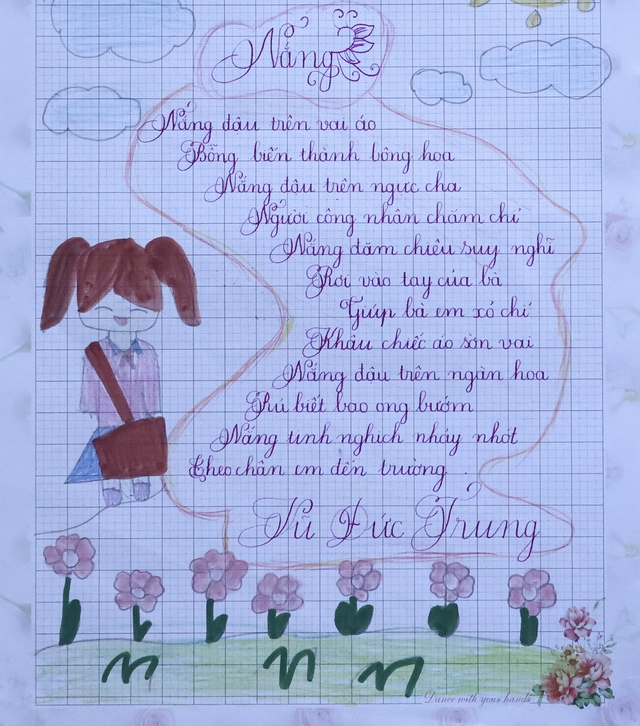 Nắng
Nắng đậu trên vai áo
Bỗng biến thành bông hoa
Nắng đậu trên ngực cha
Người công nhân chăm chỉ
Nắng đăm chiêu suy nghĩ
Rơi vào tay của bà
Giúp bà em xỏ chỉ
Khâu chiếc áo sờn vai
Nắng đậu trên ngàn hoa
Rủ biết bao ong bướm
Nắng tinh nghịch nhảy nhót
Theo chân em đến trường.
Vũ Đức Trung
Dance with your hands